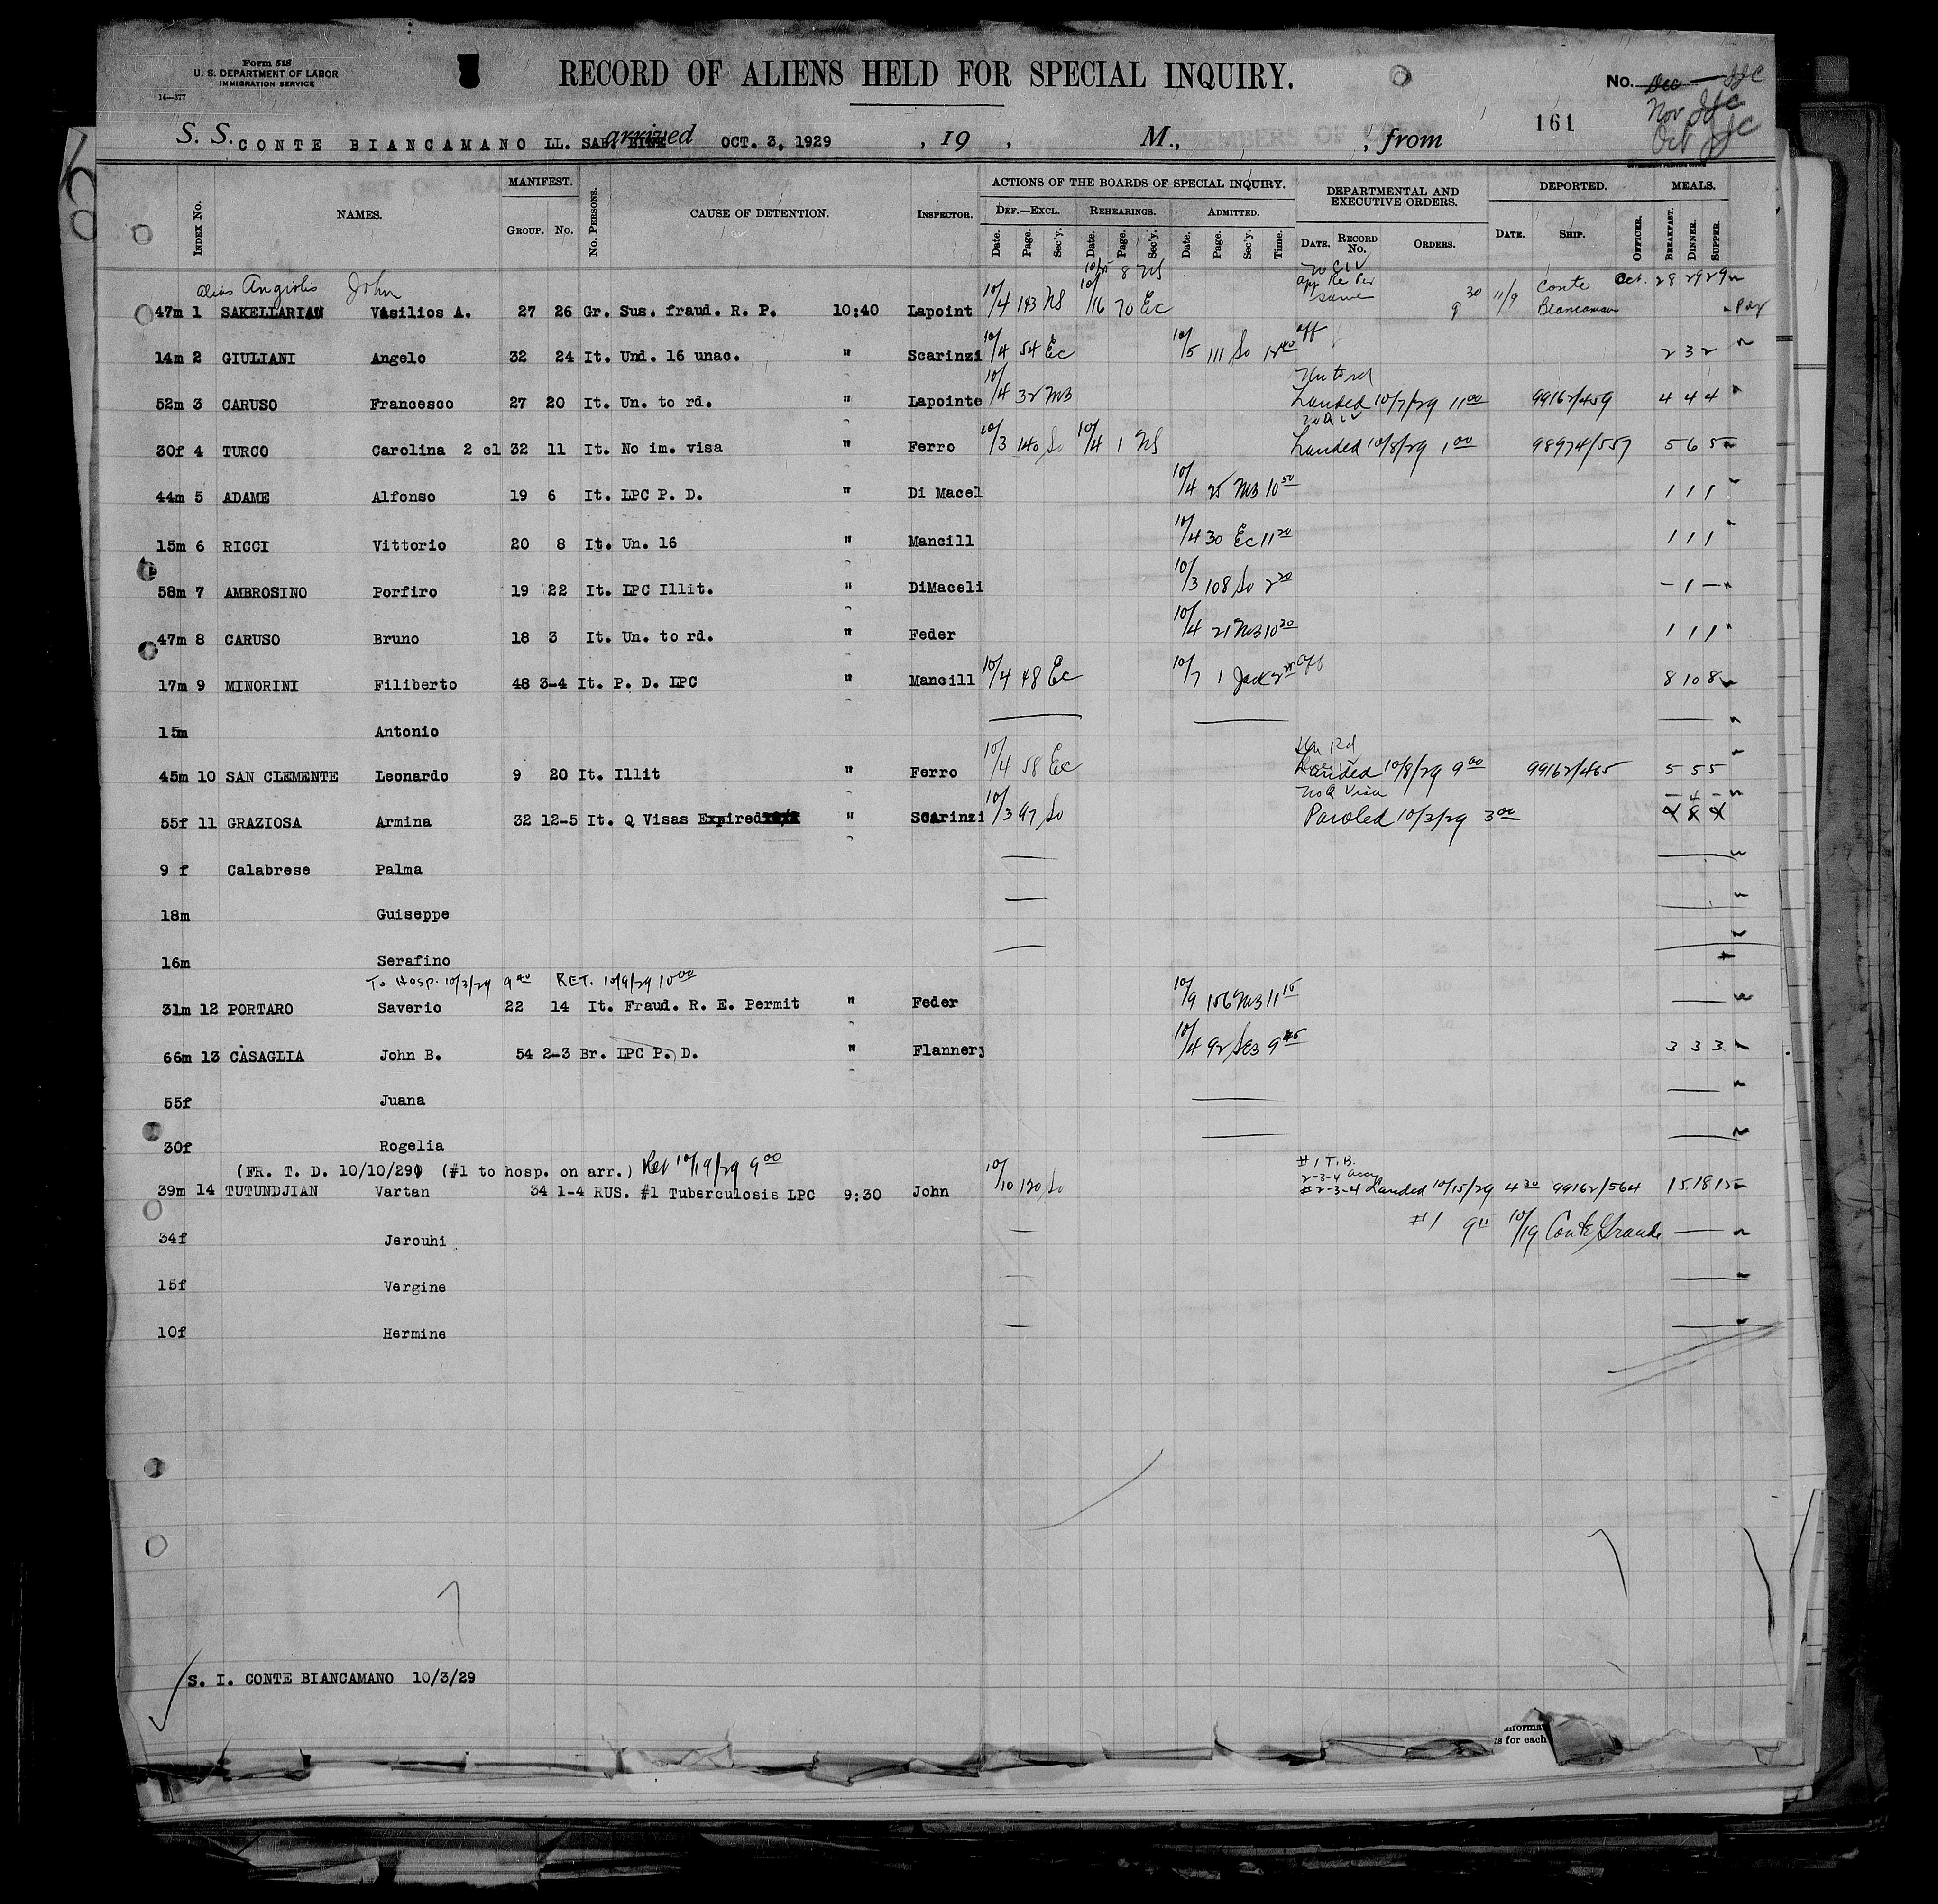 Form 518
U. S. DEPARTMENT OF LABOR
IMMIGRATION SERVICE
14—377
RECORD OF ALIENS HELD FOR SPECIAL INQUIRY.
No. Dec
Nov
Oct
161
S. S. CONTE BIANCAMANO LL. SAB. LINE arrived OCT. 3, 1929 , 19 , M., , from
GOVERNMENT PRINTING OFFICE
INDEX No. NAMES. MANIFEST. GROUP. No. No. PERSONS. CAUSE OF DETENTION. INSPECTOR. ACTIONS OF THE BOARDS OF SPECIAL INQUIRY. DEF.—EXCL. Date. Page. Sec'y. REHEARINGS. Date. Page. Sec'y. ADMITTED. Date. Page. Sec'y. Time. DEPARTMENTAL AND EXECUTIVE ORDERS. DATE. RECORD No. ORDERS. DEPORTED. DATE. SHIP. OFFICER. MEALS. BREAKFAST. DINNER. SUPPER.
alias Angiolis John 10/15 8 NS
47m 1 SAKELLARIAN Vasilios A. 27 26 Gr. Sus. fraud. R. P. 10:40 Lapoint 10/4 143 NS 10/16 70 Ec same 9 30 11/9 Conte Biancamano Oct. 28 29 29
14m 2 GIULIANI Angelo 32 24 It. Und. 16 unac. " Scarinzi 10/4 54 Ec 10/5 111 So 12 40 off 2 3 2
52m 3 CARUSO Francesco 27 20 It. Un. to rd. " Lapointe 10/4 32 MB Landed 10/7/29 11 00 99162/459 4 4 4
30f 4 TURCO Carolina 2 cl 32 11 It. No im. visa " Ferro 10/3 140 So 10/4 1 NS Landed 10/8/29 1 00 98974/557 5 6 5
44m 5 ADAME Alfonso 19 6 It. LPC P. D. " Di Macel 10/4 25 MB 10 50 1 1 1
15m 6 RICCI Vittorio 20 8 It. Un. 16 " Mancill 10/4 30 Ec 11 20 1 1 1
58m 7 AMBROSINO Porfiro 19 22 It. LPC Illit. " DiMaceli 10/3 108 So 2 20 — 1 —
47m 8 CARUSO Bruno 18 3 It. Un. to rd. " Feder 10/4 21 MB 10 20 1 1 1
17m 9 MINORINI Filiberto 48 3-4 It. P. D. LPC " Mancill 10/4 48 Ec 10/7 1 Jack off 8 10 8
15m Antonio
45m 10 SAN CLEMENTE Leonardo 9 20 It. Illit " Ferro 10/4 58 Ec Landed 10/8/29 9 00 99162/465 5 5 5
55f 11 GRAZIOSA Armina 32 12-5 It. Q Visas Expired " Scarinzi 10/3 97 So No Q Visa Paroled 10/3/29 3 00
9 f Calabrese Palma
18m Guiseppe
16m Serafino
To Hosp. 10/3/29 9 40 RET. 10/9/29 10 00
31m 12 PORTARO Saverio 22 14 It. Fraud. R. E. Permit " Feder 10/9 156 MB 11 15
66m 13 CASAGLIA John B. 54 2-3 Br. LPC P. D. " Flannery 10/4 92 9 45 3 3 3
55f Juana
30f Rogelia
(FR. T. D. 10/10/29) (#1 to hosp. on arr.) Ret 10/19/29 9 00 #1 T.B.
39m 14 TUTUNDJIAN Vartan 34 1-4 RUS. #1 Tuberculosis LPC 9:30 John 10/10 120 So #2-3-4 Landed 10/15/29 4 30 99162/564 15 18 15
34f Jerouhi #1 9 15 10/19 Conte Grande
15f Vergine
10f Hermine
S. I. CONTE BIANCAMANO 10/3/29
s for each